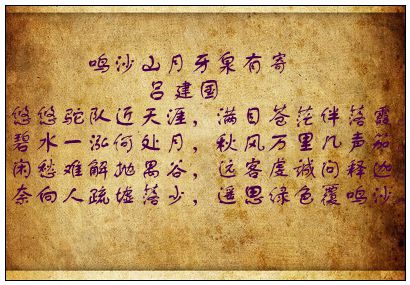 鸣沙山月牙泉有寄
吕建国
悠悠驼队近天涯，满目苍茫伴落霞
碧水一泓何处月，秋风万里几声笳
闲愁难解抛愚谷，远客虔诚问释迦
奈何人疏墟落少，遥思绿色覆鸣沙